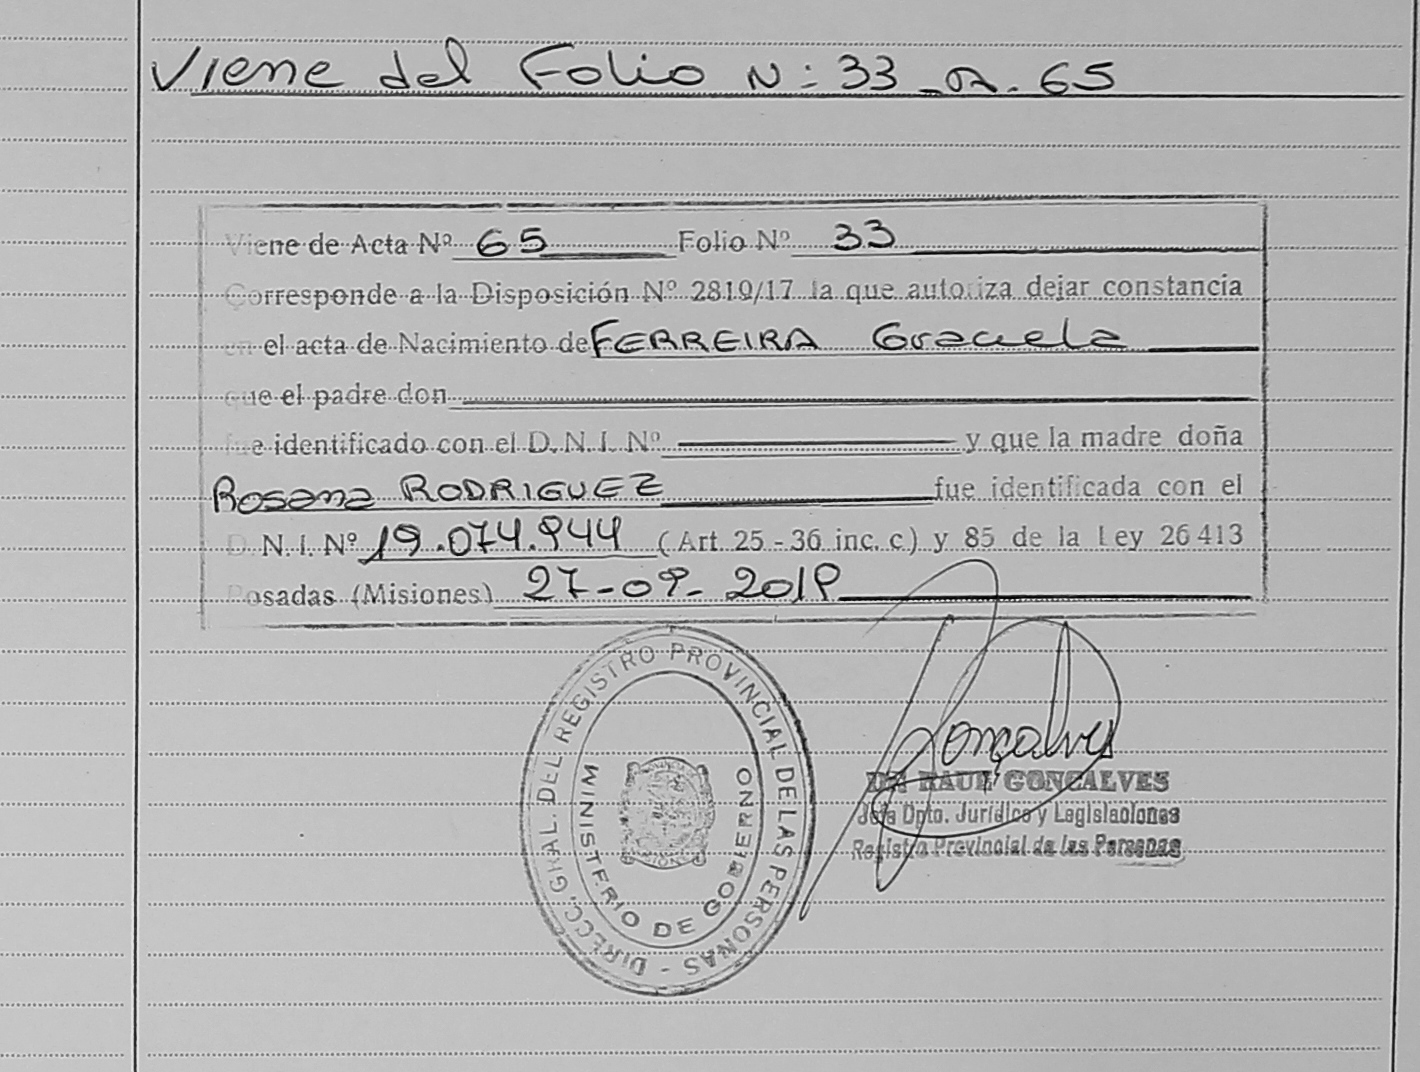 Viene del Folio N: 33 a. 65
Viene de Acta Nº 65 Folio Nº 33
Corresponde a la Disposición Nº 2819/17 la que autoriza dejar constancia
en el acta de Nacimiento de FERREIRA Graciela
que el padre don
fue identificado con el D. N. I. Nº y que la madre doña
Rosana RODRIGUEZ fue identificada con el
D. N. I. Nº 19.074.944 (Art. 25 - 36 inc. c) y 85 de la Ley 26 413
Posadas (Misiones) 27-09-2019
DIRECC. GRAL. DEL REGISTRO PROVINCIAL DE LAS PERSONAS -
MINISTERIO DE GOBIERNO
Gonçalves
DR RAUL GONCALVES
Jefe Dpto. Jurídico y Legislaciones
Registro Provincial de las Personas